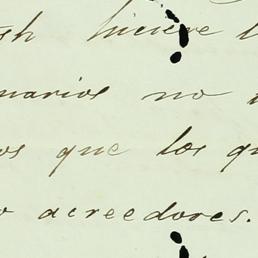 sh hiciere l
narios no
os que los qu
o acreedores.